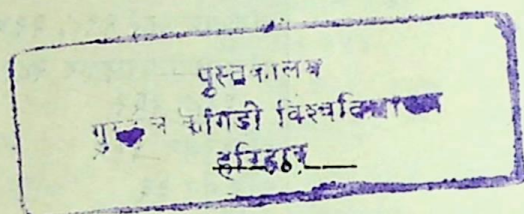 पुस्तकालय
गुरुकुल काँगडी विश्वविद्यालय
हरिद्वार